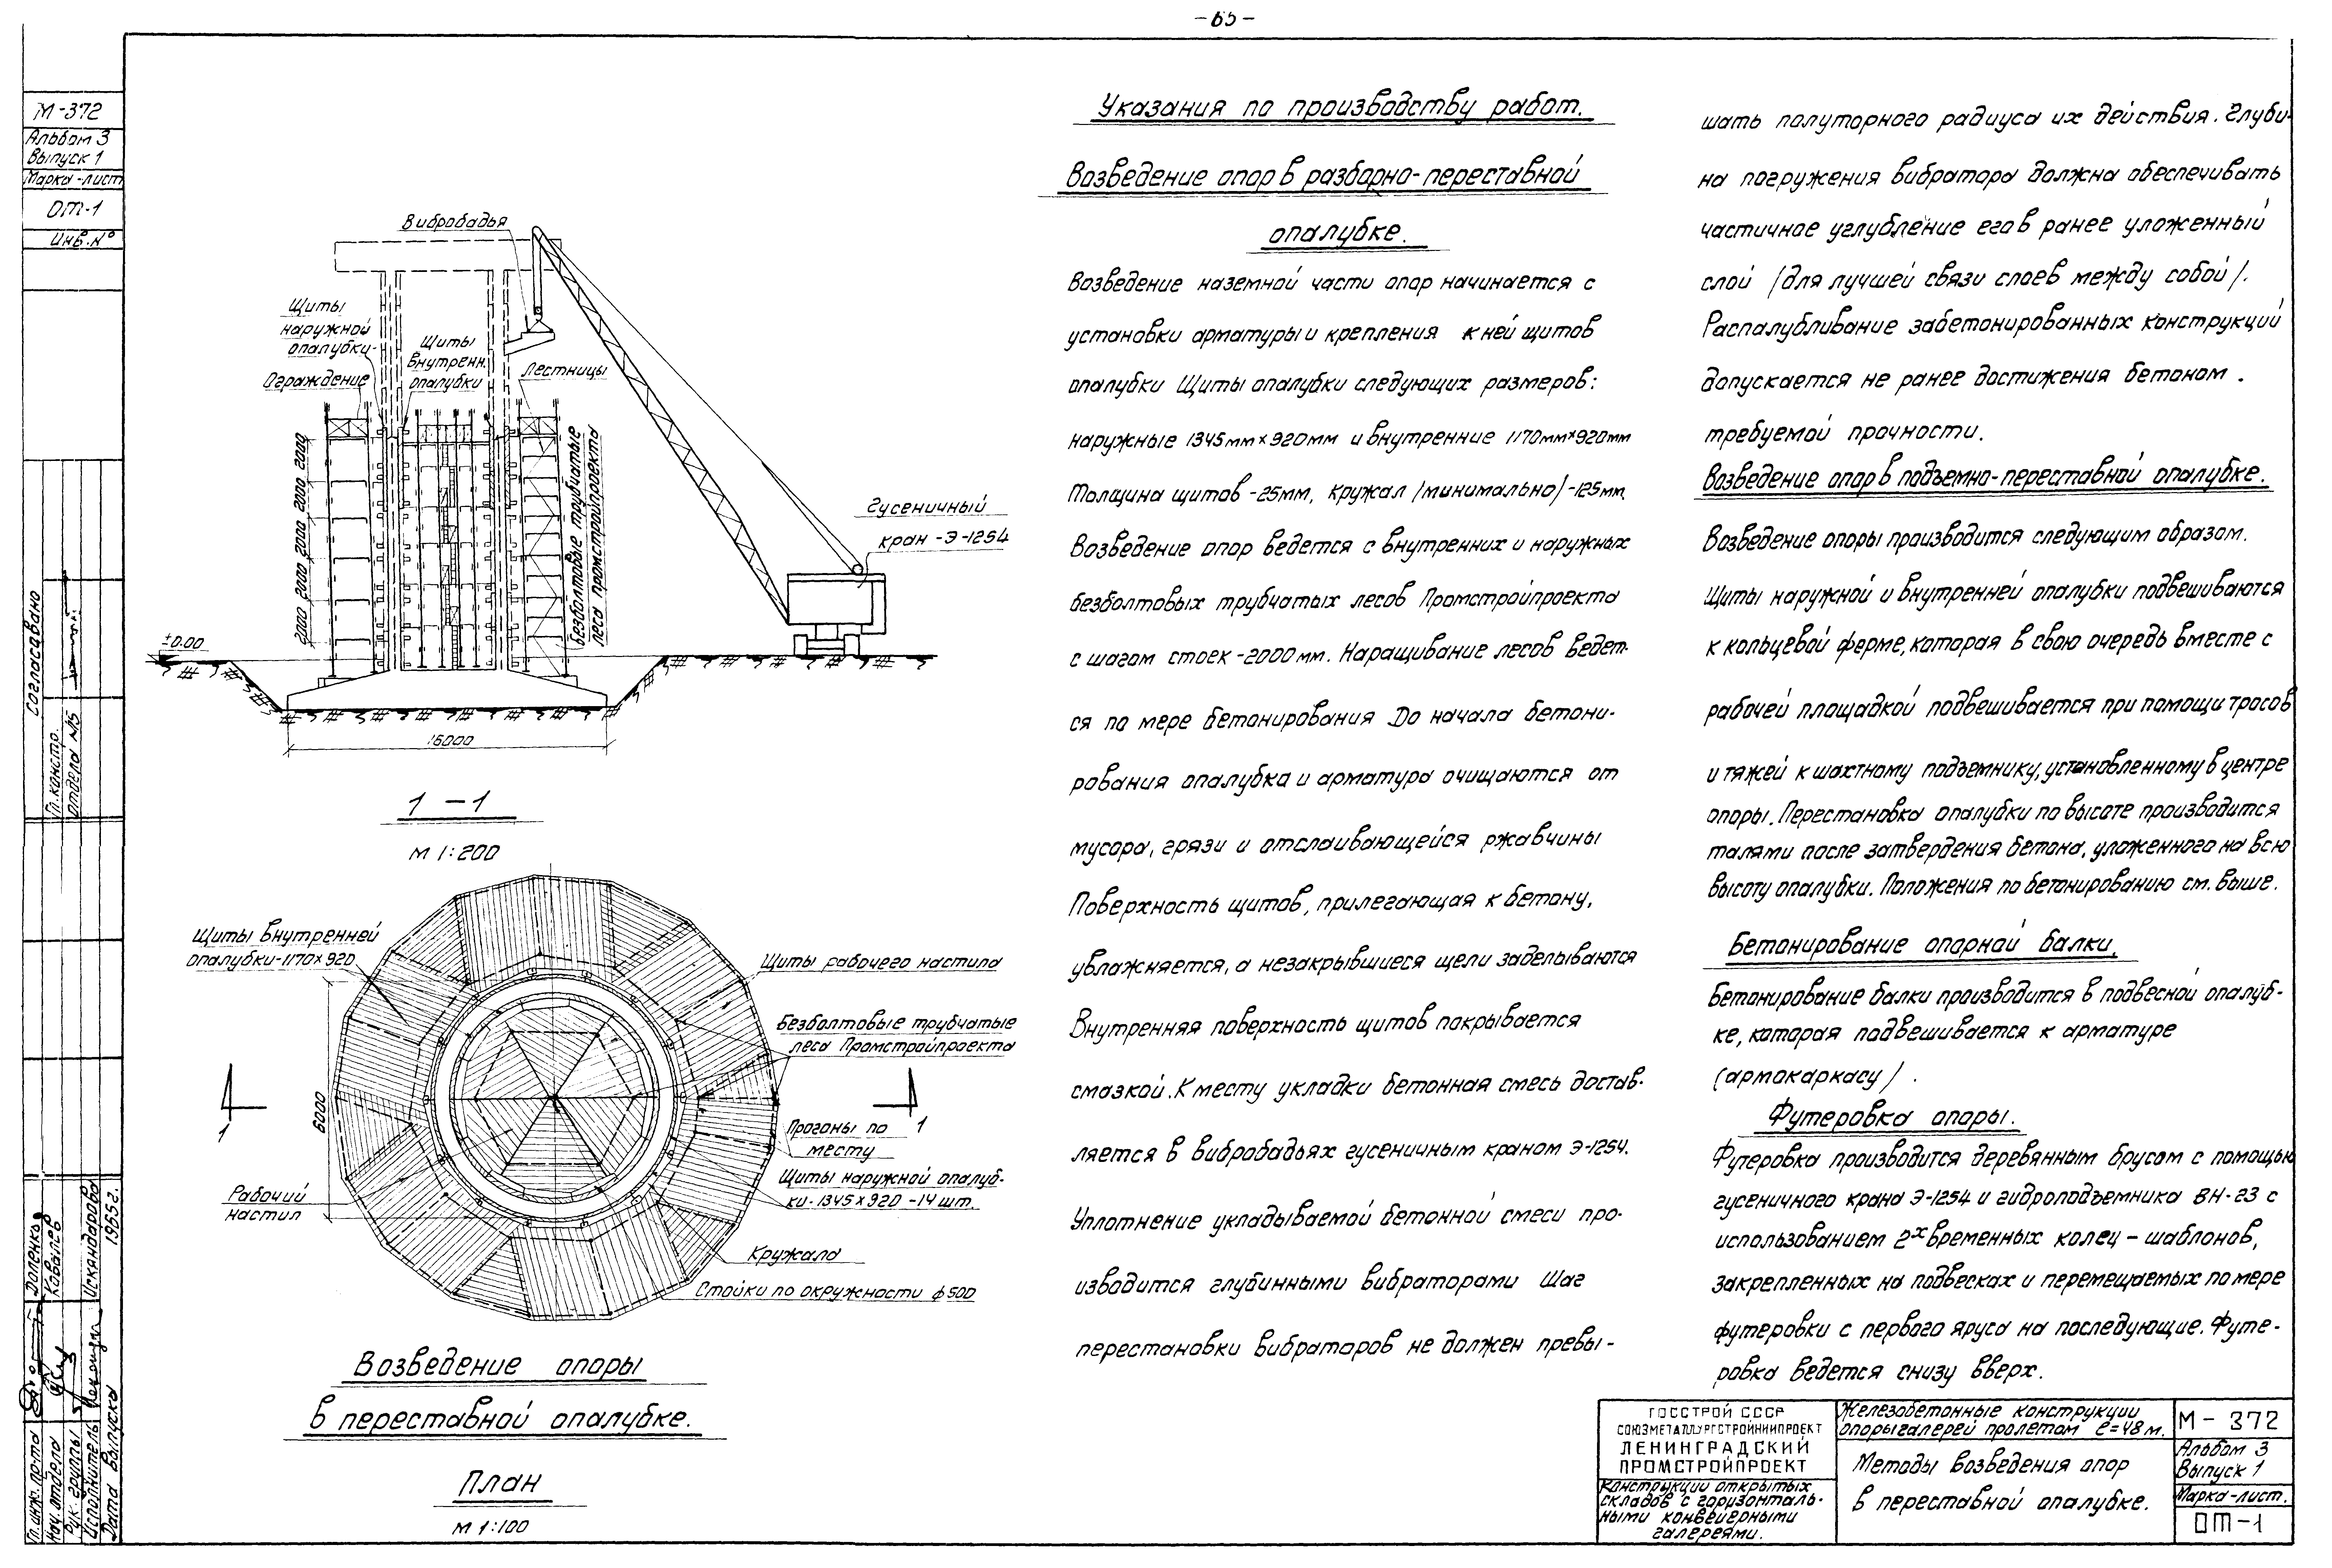 -65-
М-372
Альбом 3
Выпуск 1
Марка-лист
ОТ-1
Инв.№
Согласовано
Гл. констр.
отдела №5
Доленко
Ковалев
Искандарова
1965г.
Гл. инж. пр-та
Нач. отдела
Рук. группы
Исполнитель
Дата выпуска
Вибробадья
Щиты
наружной
опалубки
Ограждение
Щиты
внутренн.
опалубки
Лестницы
2000 2000 2000 2000 2000
Безболтовые трубчатые
леса промстройпроекта
Гусеничный
кран-Э-1254
±0.00
16000
1-1
М 1:200
Щиты внутренней
опалубки-1170×920
Щиты рабочего настила
Безболтовые трубчатые
леса Промстройпроекта
6000
1
1
Прогоны по
месту
Щиты наружной опалуб-
ки-1345×920-14 шт.
Рабочий
настил
Кружала
Стойки по окружности ф500
Возведение опоры
в переставной опалубке.
План
М 1:100
Указания по производству работ.
Возведение опор в разборно-переставной
опалубке.
Возведение наземной части опор начинается с
установки арматуры и крепления к ней щитов
опалубки Щиты опалубки следующих размеров:
наружные 1345мм×920мм и внутренние 1170мм×920мм
Толщина щитов -25мм, кружал /минимально/-125мм.
Возведение опор ведется с внутренних и наружных
безболтовых трубчатых лесов Промстройпроекта
с шагом стоек -2000мм. Наращивание лесов ведет-
ся по мере бетонирования До начала бетони-
рования опалубка и арматура очищаются от
мусора, грязи и отслаивающейся ржавчины
Поверхность щитов, прилегающая к бетону,
увлажняется, а незакрывшиеся щели заделываются
Внутренняя поверхность щитов покрывается
смазкой. К месту укладки бетонная смесь достав-
ляется в вибробадьях гусеничным краном Э-1254.
Уплотнение укладываемой бетонной смеси про-
изводится глубинными вибраторами Шаг
перестановки вибраторов не должен превы-
шать полуторного радиуса их действия. Глуби-
на погружения вибратора должна обеспечивать
частичное углубление его в ранее уложенный
слой /для лучшей связи слоев между собой/.
Распалубливание забетонированных конструкций
допускается не ранее достижения бетоном.
требуемой прочности.
Возведение опор в подъемно-переставной опалубке.
Возведение опоры производится следующим образом.
Щиты наружной и внутренней опалубки подвешиваются
к кольцевой ферме, которая в свою очередь вместе с
рабочей площадкой подвешивается при помощи тросов
и тяжей к шахтному подъемнику, установленному в центре
опоры. Перестановка опалубки по высоте производится
талями после затвердения бетона, уложенного на всю
высоту опалубки. Положения по бетонированию см. выше.
Бетонирование опорной балки.
Бетонирование балки производится в подвесной опалуб-
ке, которая подвешивается к арматуре
(армокаркасу).
Футеровка опоры.
Футеровка производится деревянным брусом с помощью
гусеничного крана Э-1254 и гидроподъемника ВН-23 с
использованием 2х временных колец - шаблонов,
закрепленных на подвесках и перемещаемых по мере
футеровки с первого яруса на последующие. Футе-
ровка ведется снизу вверх.
ГОССТРОЙ СССР
СОЮЗМЕТАЛЛУРГСТРОЙНИИПРОЕКТ
ЛЕНИНГРАДСКИЙ
ПРОМСТРОЙПРОЕКТ
Конструкции открытых
складов с горизонталь-
ными конвейерными
галереями.
Железобетонные конструкции
опоры галерей пролетом ℓ=48м.
Методы возведения опор
в переставной опалубке.
М-372
Альбом 3
Выпуск 1
Марка-лист.
ОТ-1